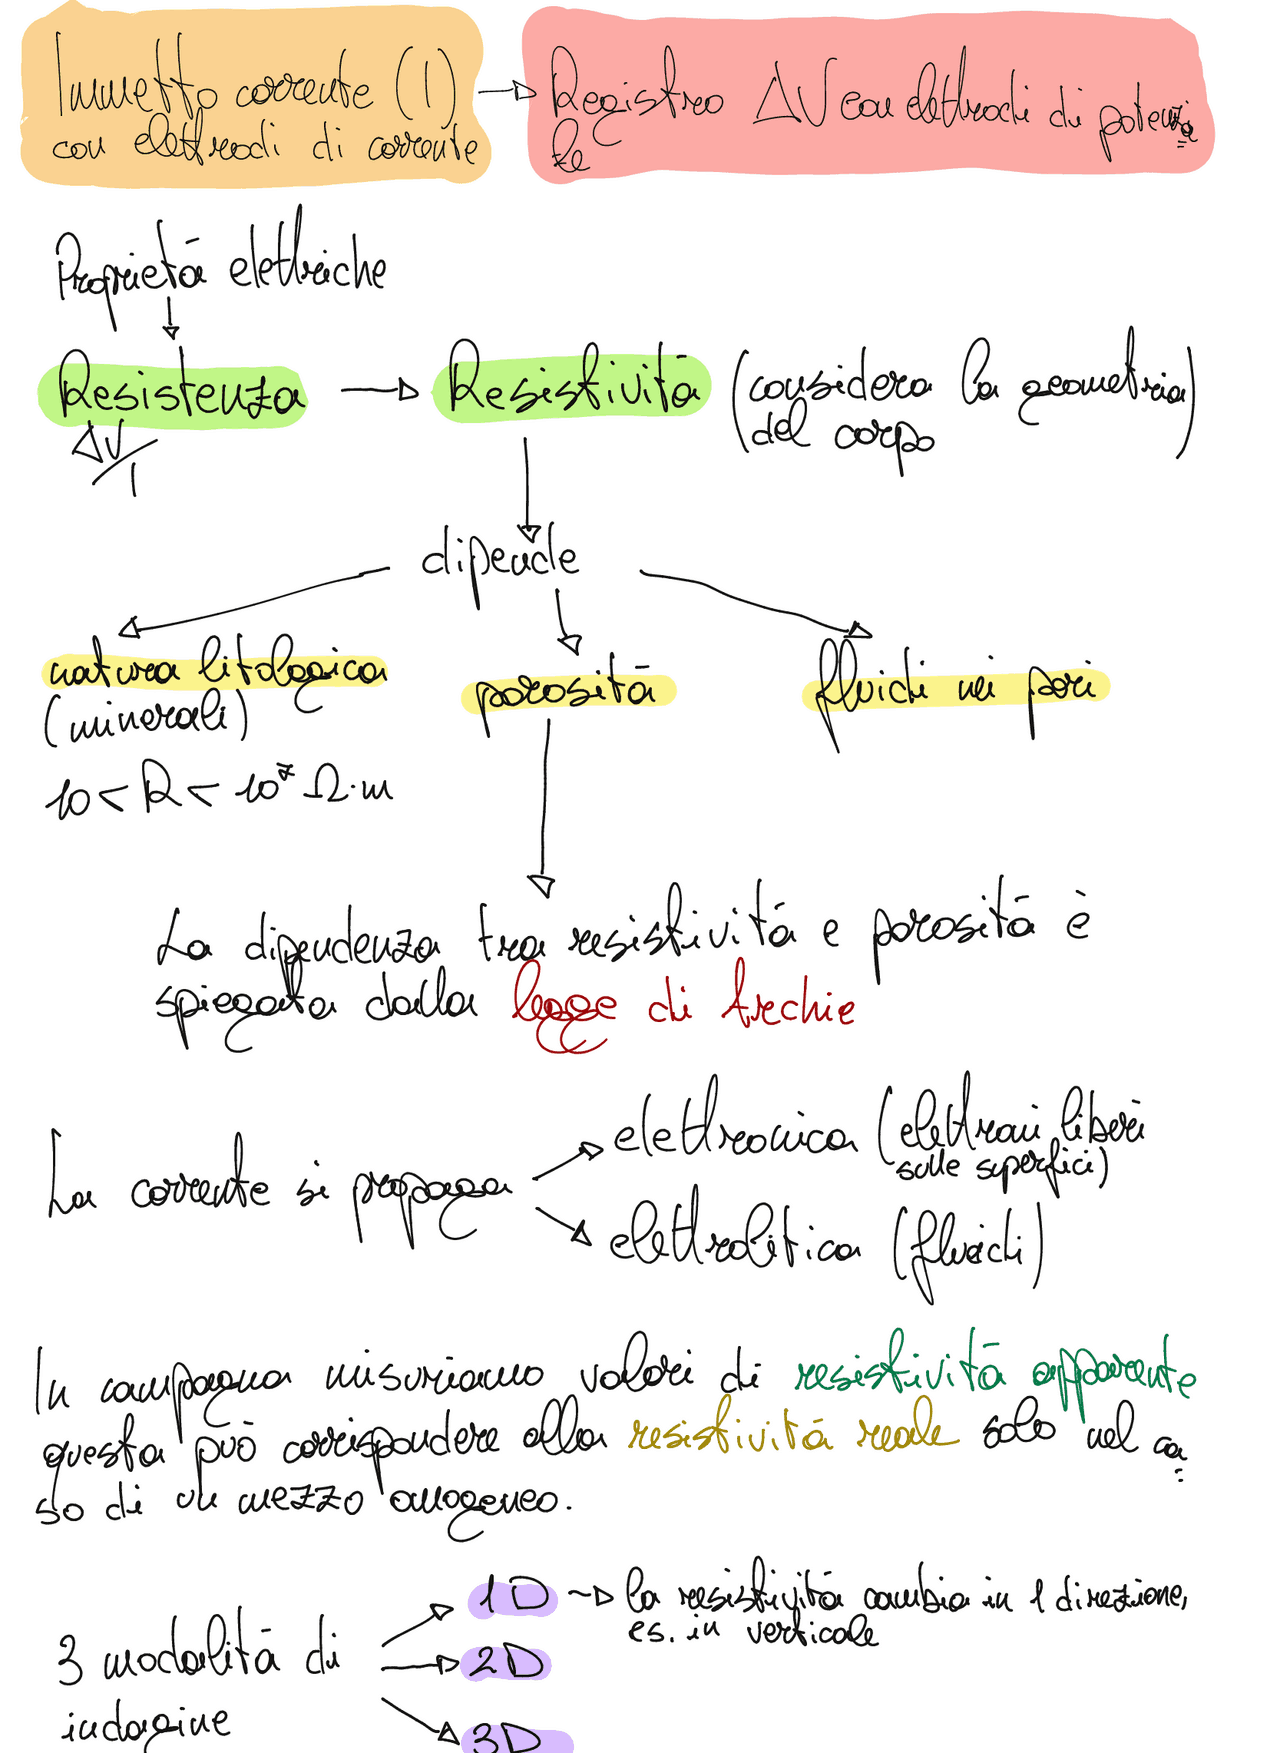 Immetto corrente (I) → Registro ΔV con elettrodi di potenzia
con elettrodi di corrente le
Proprietà elettriche
Resistenza → Resistività (considera la geometria)
ΔV/I del corpo
dipende
natura litologica porosità fluidi nei pori
(minerali)
10 < R < 10⁷ Ω·m
La dipendenza tra resistività e porosità è
spiegata dalla legge di Archie
elettronica (elettroni liberi
sulle superfici)
La corrente si propaga
elettrolitica (fluidi)
In campagna misuriamo valori di resistività apparente
questa può corrispondere alla resistività reale solo nel ca
so di un mezzo omogeneo.
1D → la resistività cambia in 1 direzione,
es. in verticale
3 modalità di 2D
indagine 3D